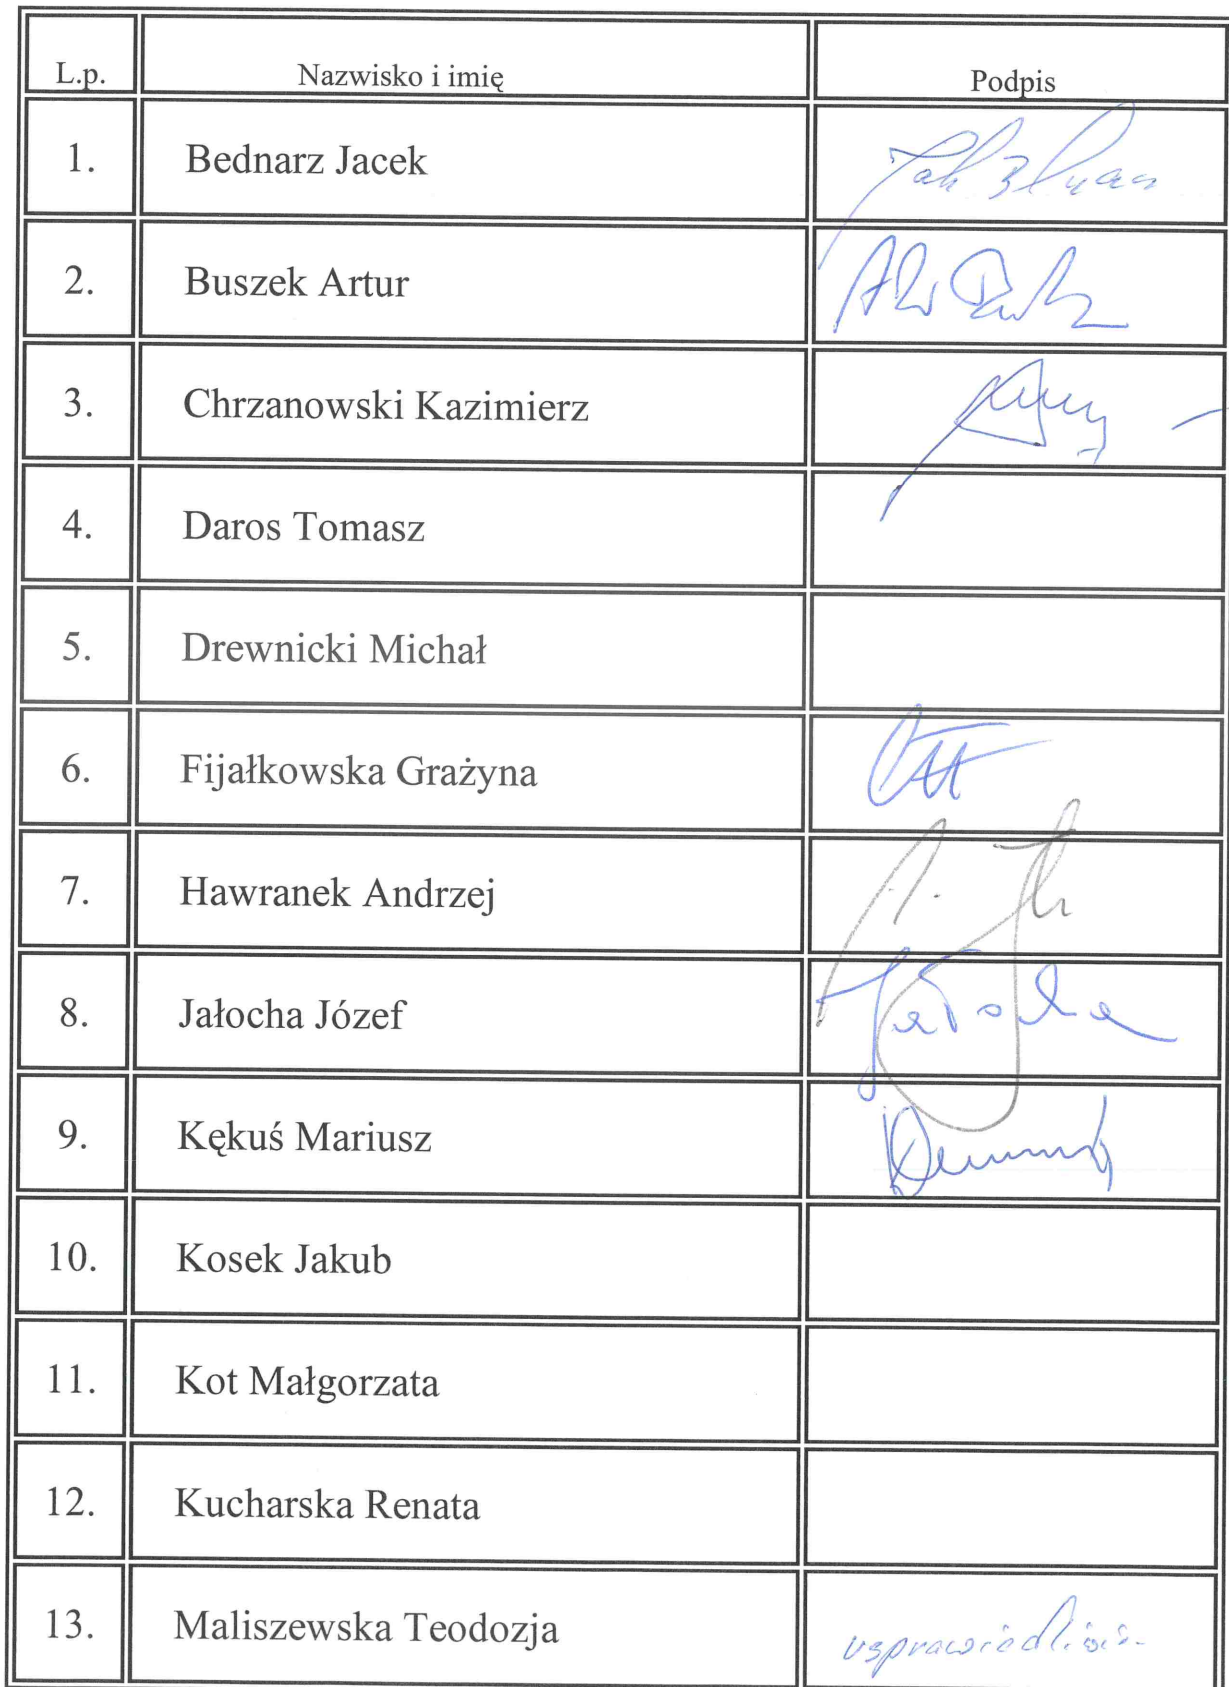 L.p. Nazwisko i imię Podpis
1. Bednarz Jacek
2. Buszek Artur
3. Chrzanowski Kazimierz
4. Daros Tomasz
5. Drewnicki Michał
6. Fijałkowska Grażyna
7. Hawranek Andrzej
8. Jałocha Józef Jałocha
9. Kękuś Mariusz
10. Kosek Jakub
11. Kot Małgorzata
12. Kucharska Renata
13. Maliszewska Teodozja